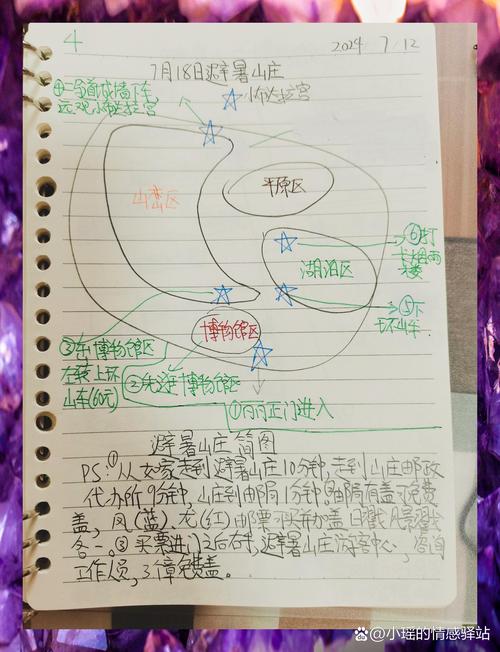 4
2024 7/12
7月18日避暑山庄
小布达拉宫
远观小布达拉宫
山峦区
平原区
湖泊区
⑥打
卡烟雨
楼
⑤下
环山车
博物馆区
③东博物馆区
左转上环
山车(60元)
②先逛博物馆区
①丽正门进入
避暑山庄简图
PS:①从如家走到避暑山庄10分钟,走到山庄邮政
代办所9分钟,山庄到邮局1分钟②邮局有盖可免费
盖,凤(蓝)、龙(红)邮票可买并加盖日戳风景戳
各一。③买票进门之后右中,避暑山庄游客中心,咨询
工作人员,3个章免费盖。
@小瑶的情感驿站